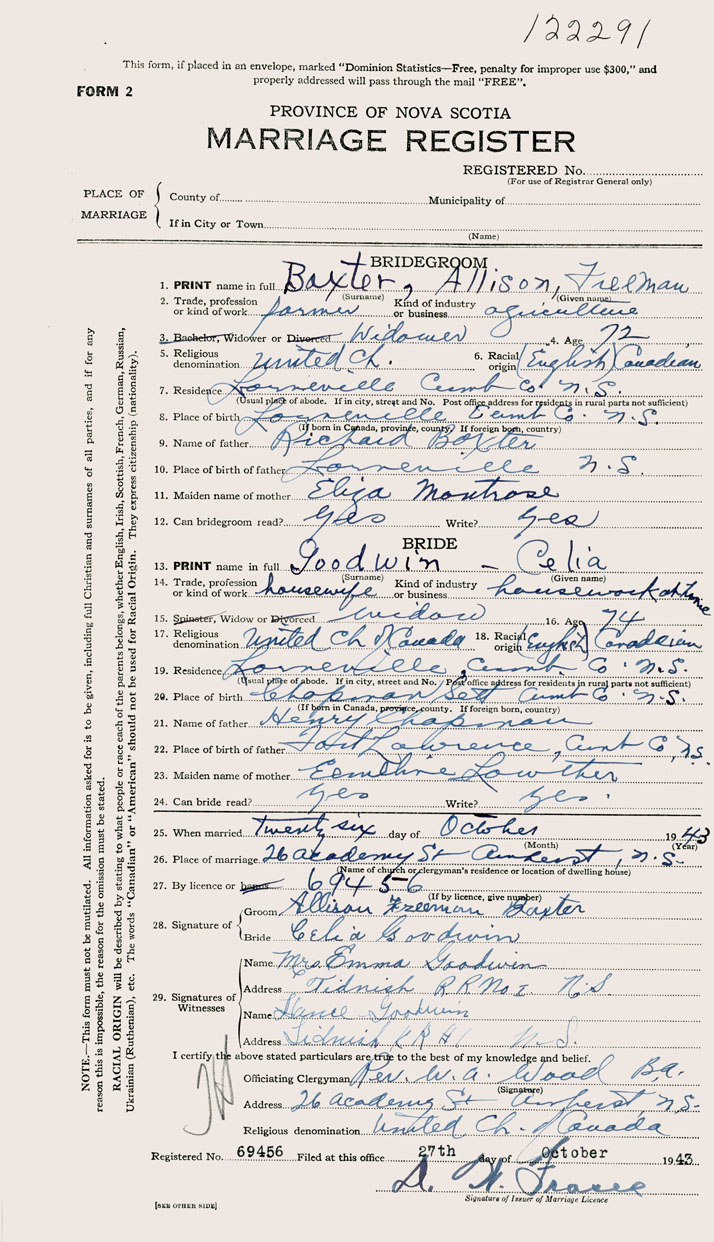 122291
This form, if placed in an envelope, marked "Dominion Statistics—Free, penalty for improper use $300," and
properly addressed will pass through the mail "FREE".
FORM 2
PROVINCE OF NOVA SCOTIA
MARRIAGE REGISTER
REGISTERED No.
(For use of Registrar General only)
PLACE OF MARRIAGE
County of Municipality of
If in City or Town
(Name)
BRIDEGROOM
1. PRINT name in full Baxter, Allison, Freeman
(Surname) (Given name)
2. Trade, profession or kind of work farmer Kind of industry or business agriculture
3. Bachelor, Widower or Divorced Widower 4. Age 72
5. Religious denomination United Ch. 6. Racial origin English Canadian
7. Residence Lorneville Cumb Co. N.S.
(Usual place of abode. If in city, street and No. Post office address for residents in rural parts not sufficient)
8. Place of birth Lorneville Cumb Co. N.S.
(If born in Canada, province, county. If foreign born, country)
9. Name of father Richard Baxter
10. Place of birth of father Lorneville N.S.
11. Maiden name of mother Eliza Montrose
12. Can bridegroom read? Yes Write? Yes
BRIDE
13. PRINT name in full Goodwin - Celia
(Surname) (Given name)
14. Trade, profession or kind of work housewife Kind of industry or business housework at home
15. Spinster, Widow or Divorced Widow 16. Age 74
17. Religious denomination United Ch of Canada 18. Racial origin English Canadian
19. Residence Lorneville, Cumb Co. N.S.
(Usual place of abode. If in city, street and No. Post office address for residents in rural parts not sufficient)
20. Place of birth Chapman Sett Cumb Co. N.S.
(If born in Canada, province, county. If foreign born, country)
21. Name of father Henry Chapman
22. Place of birth of father Fort Lawrence, Cumb Co, N.S.
23. Maiden name of mother Eemeline Lowther
24. Can bride read? Yes Write? Yes.
25. When married twenty six day of October 1943
(Month) (Year)
26. Place of marriage 26 academy St Amherst, N.S.
(Name of church or clergyman's residence or location of dwelling house)
27. By licence or banns 69456
(If by licence, give number)
28. Signature of
Groom Allison Freeman Baxter
Bride Celia Goodwin
29. Signatures of Witnesses
Name Mrs. Emma Goodwin
Address Tidnish R R No I N.S.
Name Goodwin
Address Tidnish N.S.
I certify the above stated particulars are true to the best of my knowledge and belief.
Officiating Clergyman Rev. W. A. Wood B.A.
(Signature)
Address 26 academy St Amherst N.S.
Religious denomination United Ch. of Canada
Registered No. 69456 Filed at this office 27th day of October 1943
D. W. Frasee
Signature of Issuer of Marriage Licence
[SEE OTHER SIDE]
NOTE.—This form must not be mutilated. All information asked for is to be given, including full Christian and surnames of all parties, and if for any
reason this is impossible, the reason for the omission must be stated.
RACIAL ORIGIN will be described by stating to what people or race each of the parents belongs, whether English, Irish, Scottish, French, German, Russian,
Ukrainian (Ruthenian), etc. The words "Canadian" or "American" should not be used for Racial Origin. They express citizenship (nationality).